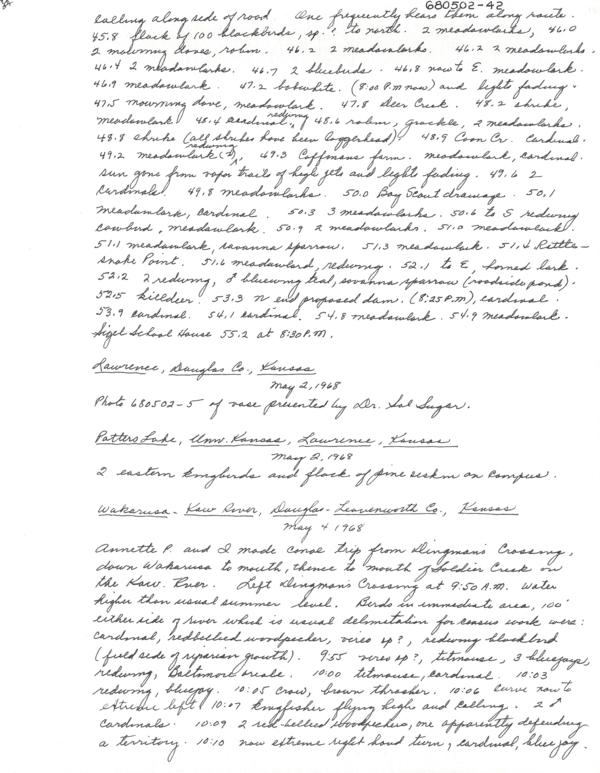 680502-42
calling along side of road. One frequently hears them along route.
45.8 flock of 100 blackbirds, sp.? to north. 2 meadowlarks, 46.0
2 mourning doves, robin. 46.2 2 meadowlarks. 46.2 2 meadowlarks.
46.4 2 meadowlarks. 46.7 2 bluebirds. 46.8 now to E. meadowlark.
46.9 meadowlark. 47.2 bobwhite. (8:00 P.M now) and lights fading.
47.5 mourning dove, meadowlark. 47.8 Deer Creek. 48.2 shrike,
meadowlark 48.4 cardinal, redwing 48.6 robin, grackle, 2 meadowlarks.
48.8 shrike (all shrikes have been loggerhead). 48.9 Coon Cr. Cardinal.
49.2 meadowlark (2), redwing 49.3 Coffmans farm. meadowlark, cardinal.
sun gone from vapor trails of high jets and lights fading. 49.6 2
cardinals. 49.8 meadowlarks. 50.0 Boy Scout drawage. 50.1
meadowlark, cardinal. 50.3 3 meadowlarks. 50.6 to S redwing
cowbird, meadowlark. 50.9 2 meadowlarks. 51.0 meadowlark.
51.1 meadowlark, savanna sparrow. 51.3 meadowlark. 51.4 Rattle-
snake Point. 51.6 meadowlard, redwing. 52.1 to E, horned lark.
52.2 2 redwing, ♂ bluewing teal, savanna sparrow (roadside pond).
52.5 killdeer. 53.3 N end proposed dam. (8:25 P.M), cardinal.
53.9 cardinal. 54.1 cardinal. 54.8 meadowlark. 54.9 meadowlark.
Sigel School House 55.2 at 8:30 P.M.
Lawrence, Douglas Co., Kansas
May 2, 1968
Photo 680502-5 of vase presented by Dr. Sol Sugar.
Potters Lake, Univ. Kansas, Lawrence, Kansas
May 2, 1968
2 eastern kingbirds and flock of pine siskin on campus.
Wakarusa - Kaw River, Douglas - Leavenworth Co., Kansas
May 4 1968
Annette P. and I made canoe trip from Dingman's Crossing,
down Wakarusa to mouth, thence to mouth of Soldier Creek on
the Kaw River. Left Dingman's Crossing at 9:50 A.M. Water
higher than usual summer level. Birds in immediate area, 100'
either side of river which is usual delimitation for census work were:
cardinal, redbellied woodpecker, vireo sp?, redwing blackbird
(field side of riparian growth). 9:55 vireo sp?, titmouse, 3 bluejays,
redwing, Baltimore oriole. 10:00 titmouse, cardinal. 10:03
redwing, bluejay. 10:05 crow, brown thrasher. 10:06 curve now to
extreme left 10:07 kingfisher flying high and calling. 2 ♂
cardinals. 10:09 2 red-bellied woodpeckers, one apparently defending
a territory. 10:10 now extreme right hand turn, cardinal, bluejay.